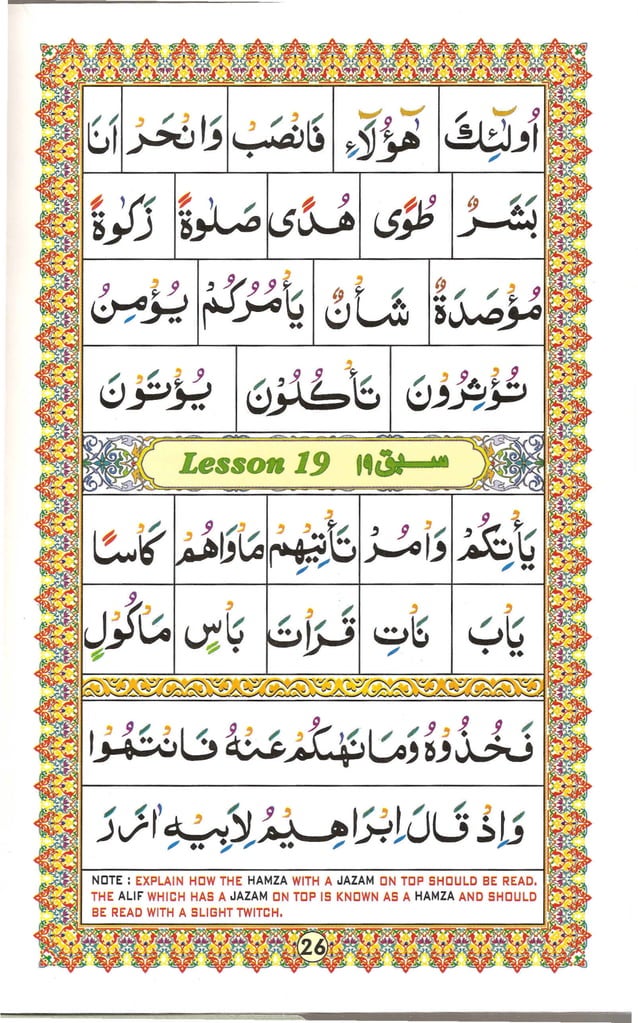 اُولٰٓئِكَ هٰٓؤُلَآءِ فَانْصَبْ وَانْحَرْ اَنَا
بَشَرٌ طُوًى هُدًى صَلٰوةً زَكٰوةً
مُؤْصَدَةٌ شَأْنٌ يَأْمُرُكُمْ يُؤْمِنُ
تُؤْثِرُونَ تَأْكُلُوْنَ يُؤْتَوْنَ
Lesson 19 سبق ۱۹
يَأْتِكُمْ وَأْمُرْ تَأْتِيْهِمْ مَاْوَاهُمْ كَاْسًا
يَاْبَ نَاْتِ قَرَاْتَ بَاْسٍ مَاْكُوْلٍ
فَخُذُوْهُ وَمَا نَهٰىكُمْ عَنْهُ فَانْتَهُوْا
وَاِذْ قَالَ اِبْرَاهِيْمُ لِاَبِيْهِ اٰزَرَ
NOTE : EXPLAIN HOW THE HAMZA WITH A JAZAM ON TOP SHOULD BE READ.
THE ALIF WHICH HAS A JAZAM ON TOP IS KNOWN AS A HAMZA AND SHOULD
BE READ WITH A SLIGHT TWITCH.
26